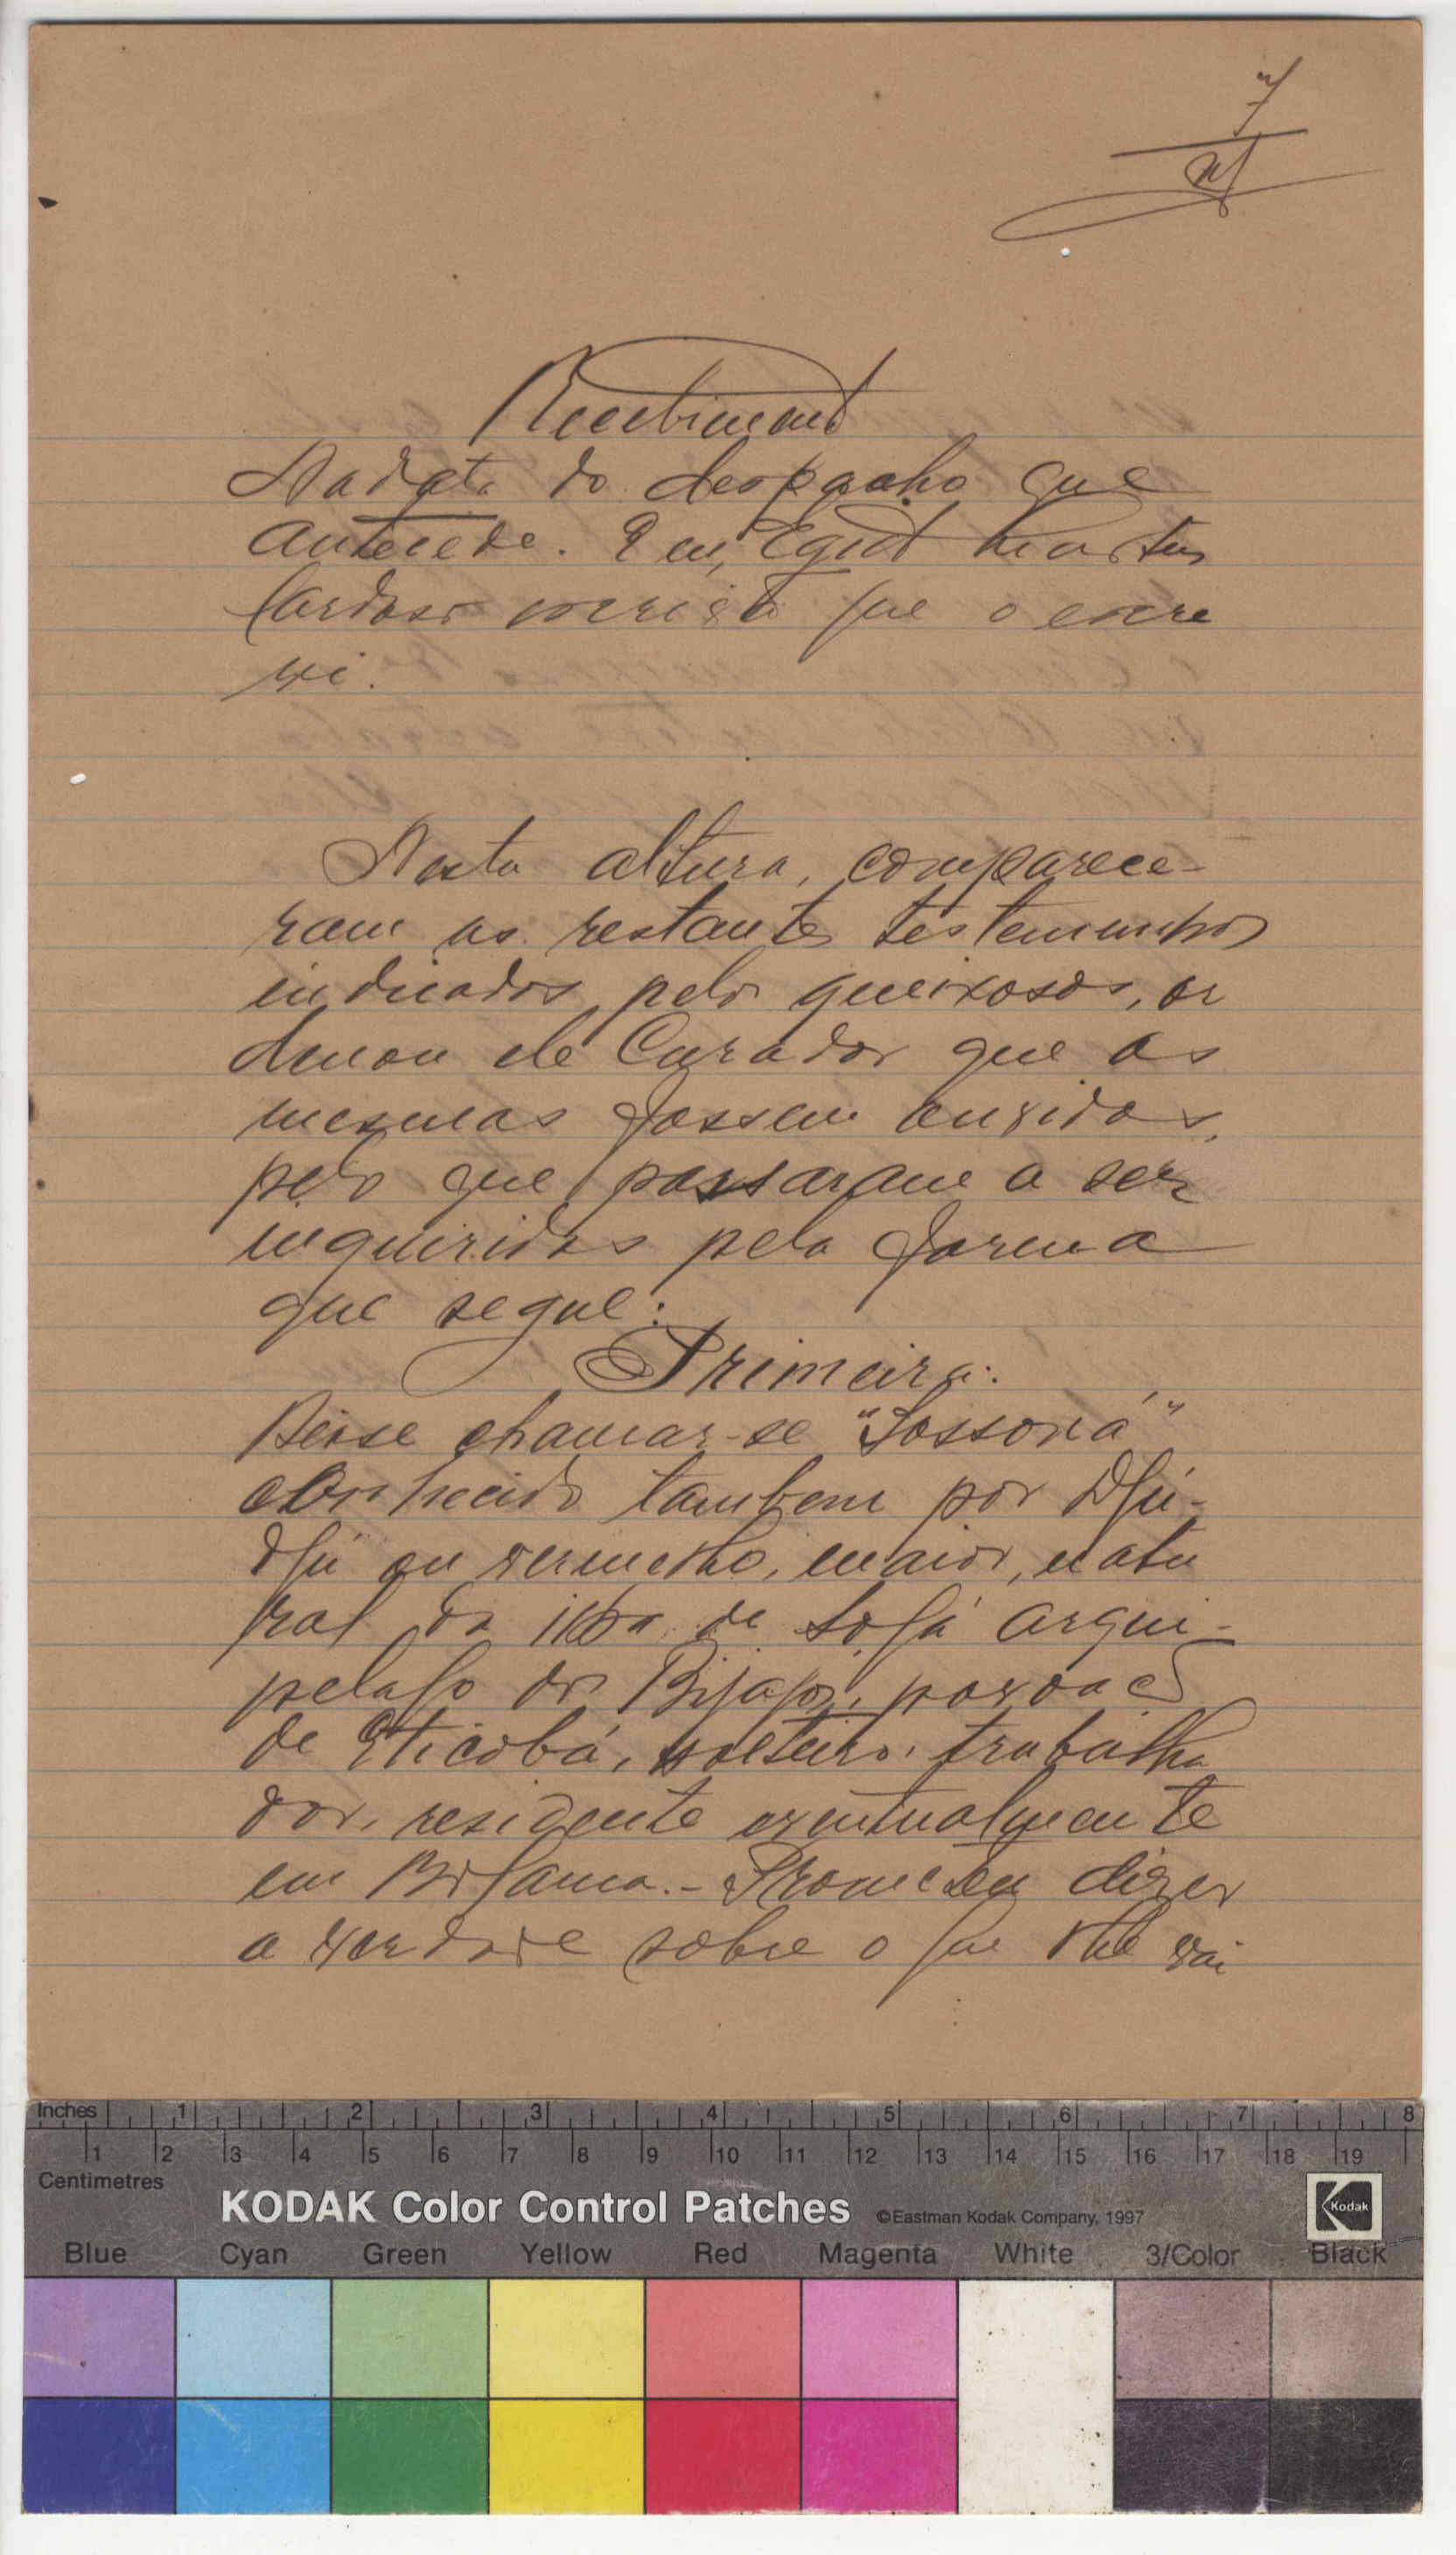 7
Recebimento
Na data do despacho que
antecede. E eu, Egidio Martins
Cardoso escrivão que o escre
vi.
Nesta altura, comparece-
ram as restantes testemunhas
indicados pelos queixosos, or
denou ele Curador que as
mesmas fossem ouvidas,
pelo que passaram a ser
inquiridas pela forma
que segue:
Primeira:
Disse chamar-se "Sossová"
conhecido tambem por Djú-
djú ou vermelho, maior, natu
ral da ilha de Sogá arqui-
pelago dos Bijagós, povoação
de Eticobá, solteiro, trabalha
dor, residente eventualmente
em Bolama.- Prometeu dizer
a verdade sobre o que lhe vai
Inches 1 2 3 4 5 6 7 8
1 2 3 4 5 6 7 8 9 10 11 12 13 14 15 16 17 18 19
Centimetres
KODAK Color Control Patches ©Eastman Kodak Company, 1997 Kodak
Blue Cyan Green Yellow Red Magenta White 3/Color Black